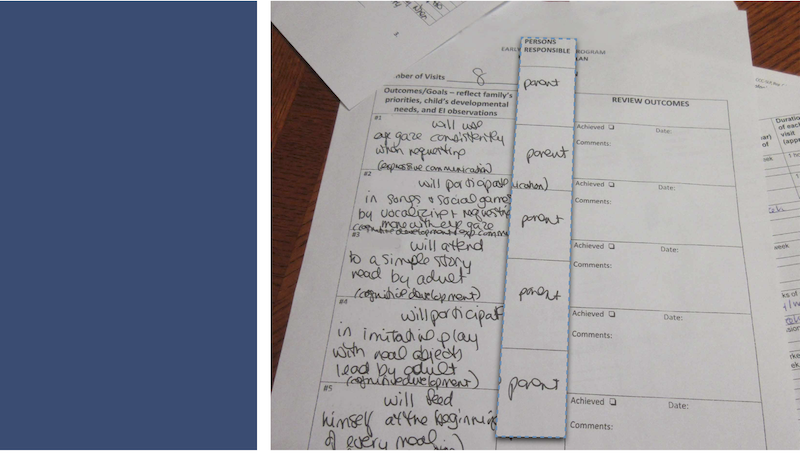 PERSONS
RESPONSIBLE
EARLY
PROGRAM
LAN
mber of Visits 8
Outcomes/Goals – reflect family's
priorities, child's developmental
needs, and EI observations
REVIEW OUTCOMES
parent
#1
will use
eye gaze consistently
when requesting
(expressive communication)
parent
Achieved ❑ Date:
Comments:
#2
will participate
in songs + social games
by vocalizing + requesting
more with eye gaze
(cognitive development + exp commu
ication)
parent
Achieved ❑ Date:
Comments:
#3
will attend
to a simple story
read by adult
(cognitive development)
parent
Achieved ❑ Date:
Comments:
#4
will participat
in imitative play
with real objects
lead by adult
(cognitive development)
parent
Achieved ❑ Date:
Comments:
#5
will feed
himself at the beginning
of every meal
Achieved ❑ Date:
Comments:
Duration
of each
visit
week